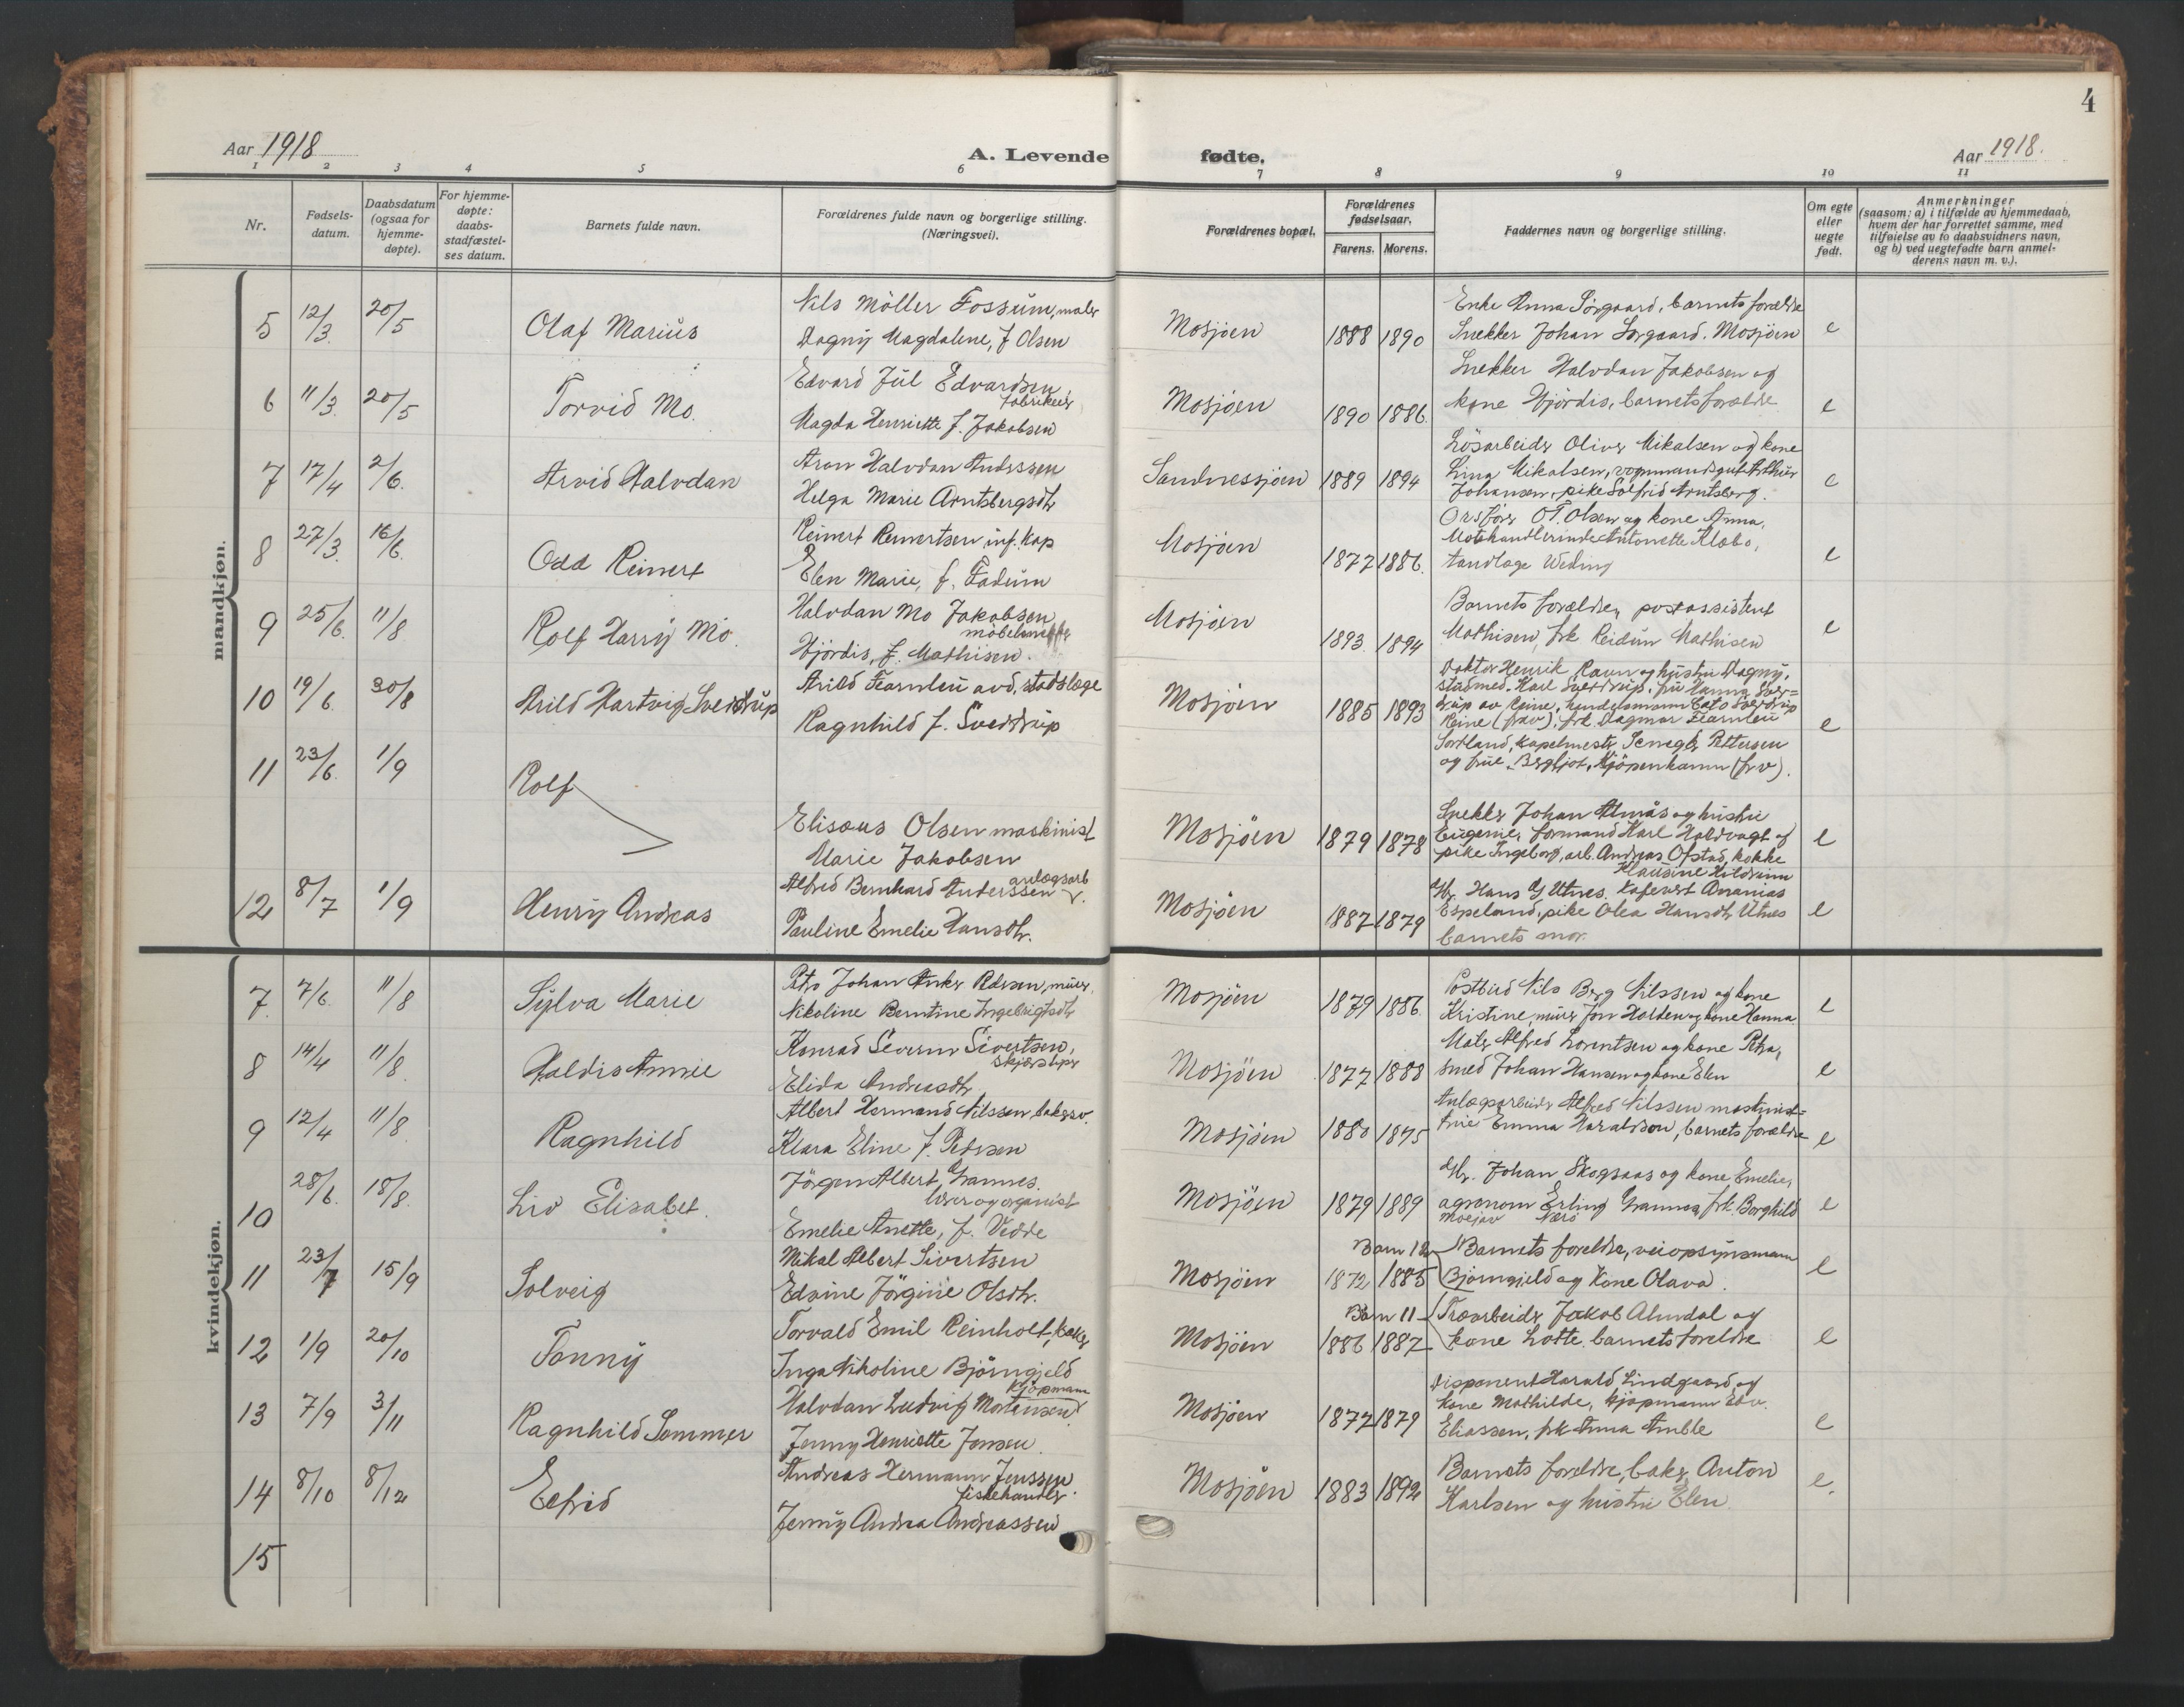 4
Aar 1918
A. Levende fødte.
Aar 1918.
1 2 3 4 5 6 7 8 9 10 11
Nr.
Fødsels-
datum.
Daabsdatum
(ogsaa for
hjemme-
døpte).
For hjemme-
døpte:
daabs-
stadfæstel-
ses datum.
Barnets fulde navn.
Forældrenes fulde navn og borgerlige stilling.
(Næringsvei).
Forældrenes bopæl.
Forældrenes
fødselsaar.
Farens. Morens.
Faddernes navn og borgerlige stilling.
Om egte
eller
uegte
født.
Anmerkninger
(saasom: a) i tilfælde av hjemmedaab,
hvem der har forrettet samme, med
tilføielse av to daabsvidners navn,
og b) ved uegtefødte barn anmel-
derens navn m. v.).
mandkjøn.
5 12/3. 20/5 Olaf Marius
Nils Möller Fossum, maler
Dagny Magdalene, f Olsen
Mosjöen 1888 1890
Enke Anna Sörgaard, barnets forældre
Snekker Johan Sörgaard. Mosjöen
e
6 11/3. 20/5 Torvid Mo.
Edvard Jul Edvardsen,
fabrikeier
Magda Henriette f. Jakobsen
Mosjöen 1890 1886.
Snekker Halvdan Jakobsen og
kone Hjördis, barnets forældre
e
7 17/4 2/6. Arvid Halvdan
Aron Halvdan Anderssen
Helga Marie Arntsbergsdtr
Sandnessjöen 1889 1894
Lösarbeider Oliver Mikalsen og kone
Lina Mikalsen, vognmandsgut Arthur
Johansen, pike Solfrid Arntsberg.
e
8 27/3. 16/6. Odd Reinert
Reinert Reinertsen, inf. kap
Elen Marie, f. Fadum
Mosjöen 1877 1886.
O.T. Olsen og kone Anna,
Motehandlerinde Antonette Klæbo,
tandlæge Weding
e
9 25/6. 11/8 Rolf Harry Mo.
Halvdan Mo Jakobsen
Hjördis, f. Mathisen.
Mosjöen 1893. 1894
Barnets forældre, postassistent
Mathisen, frk Reidun Mathisen
e
10 19/6. 30/8 Arild Hartvig Sverdrup
Arild Fearnley avd. stadslæge
Ragnhild f. Sverdrup
Mosjöen 1885 1893
Doktor Henrik Raun og hustru Dagny,
stud.med. Karl Sverdrup, fru Hanna Sver=
drup av Reine, Sverdrup
Reine (frav), frk. Dagmar Fearnley
Sortland, kapelmester Pettersen
og frue, Bergljot, Kjöpenhamn (frv).
e
11 23/6. 1/9 Rolf
Elisæus Olsen maskinist
Marie Jakobsen
Mosjöen 1879 1878
Snekker Johan Almås og hustru
Eugenie, formand Karl
pike Ingeborg, arb. Andreas Ofstad, kokke
Klausine
e
12 8/7 1/9 Henry Andreas
Alfred Bernhard Anderssen anlægsarb
Pauline Emelie Hansdtr.
Mosjöen 1887 1879
Hans Utnes, kafevert Ananias
Espeland, pike Olea Hansdtr Utnes
barnets mor.
e
kvindekjøn.
7. 7/6. 11/8 Sylva Marie
Peter Johan Anker Pedersen, murer.
Nikoline Berntine Ingebrigtsdtr
Mosjöen 1879 1886.
Postbud Nils Berg Nilssen og kone
Kristine, murer Jon Halsten og kone Hanna.
e
8 14/4 11/8. Haldis Annie
Konrad Severin Sivertsen,
Elida Andreasdtr.
Mosjöen 1877 1888
Maler Alfred Lorentsen og kone Petra,
smed Johan Hansen og kone Elen
e
9 12/4 11/8. Ragnhild
Albert Hermand Nilssen, bakersv.
Klara Eline f. Pedersen
Mosjöen 1880 1875
Anlægsarbeider Alfred Nilssen,
Emma Haraldsen, barnets forældre
e
10 28/6. 18/8. Liv Elisabet.
Jörgen Albert Grannes.
lærer og organist
Emelie Anette, f. Vedde
Mosjöen 1879 1889
Johan Skogsaas og kone Emelie,
agronom Erling Grannes, frk. Borghild
e
11 23/7 15/9 Solveig
Mikal Albert Sivertsen
Edvine Jörgine Olsdtr.
Mosjöen 1872 1885
Barn 12 Barnets forældre, veiopsynsmann
Björngjeld og kone Olava.
e
12 1/9 20/10 Fanny
Torvald Emil Reinholt, baker
Inga Nikoline Björngjeld
Mosjöen 1886 1887
Barn 11 Træarbeider Jakob Almdal og
kone Lotte, barnets foreldre
e
13 7/9 3/11 Ragnhild Sommer
kjöpmann
Halvdan Ludvig Mortensen
Jenny Henriette Jensen.
Mosjöen 1877 1879
Disponent Harald Lindgaard og
kone Mathilde, kjöpmann Edv.
Eliassen, frk Anna Amble
e
14 8/10 8/12 Elfrid
Andreas Hermann Jenssen
fiskehandler.
Jenny Andrea Andreassen
Mosjöen 1883 1892
Barnets foreldre, baker Anton
Karlsen og hustru Elen.
e.
15